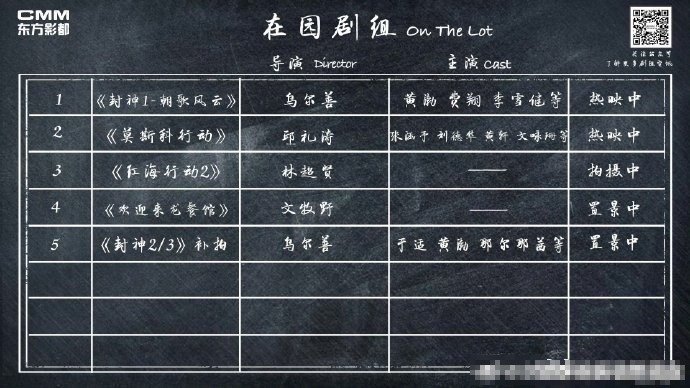 CMM
东方影都
在园剧组 On The Lot
导演 Director
主演 Cast
1 《封神1-朝歌风云》 乌尔善 黄渤 费翔 李雪健等 热映中
2 《莫斯科行动》 邱礼涛 张涵予 刘德华 黄轩 文咏珊等 热映中
3 《红海行动2》 林超贤 —— 拍摄中
4 《欢迎来龙餐馆》 文牧野 —— 置景中
5 《封神2/3》补拍 乌尔善 于适 黄渤 那尔那茜等 置景中